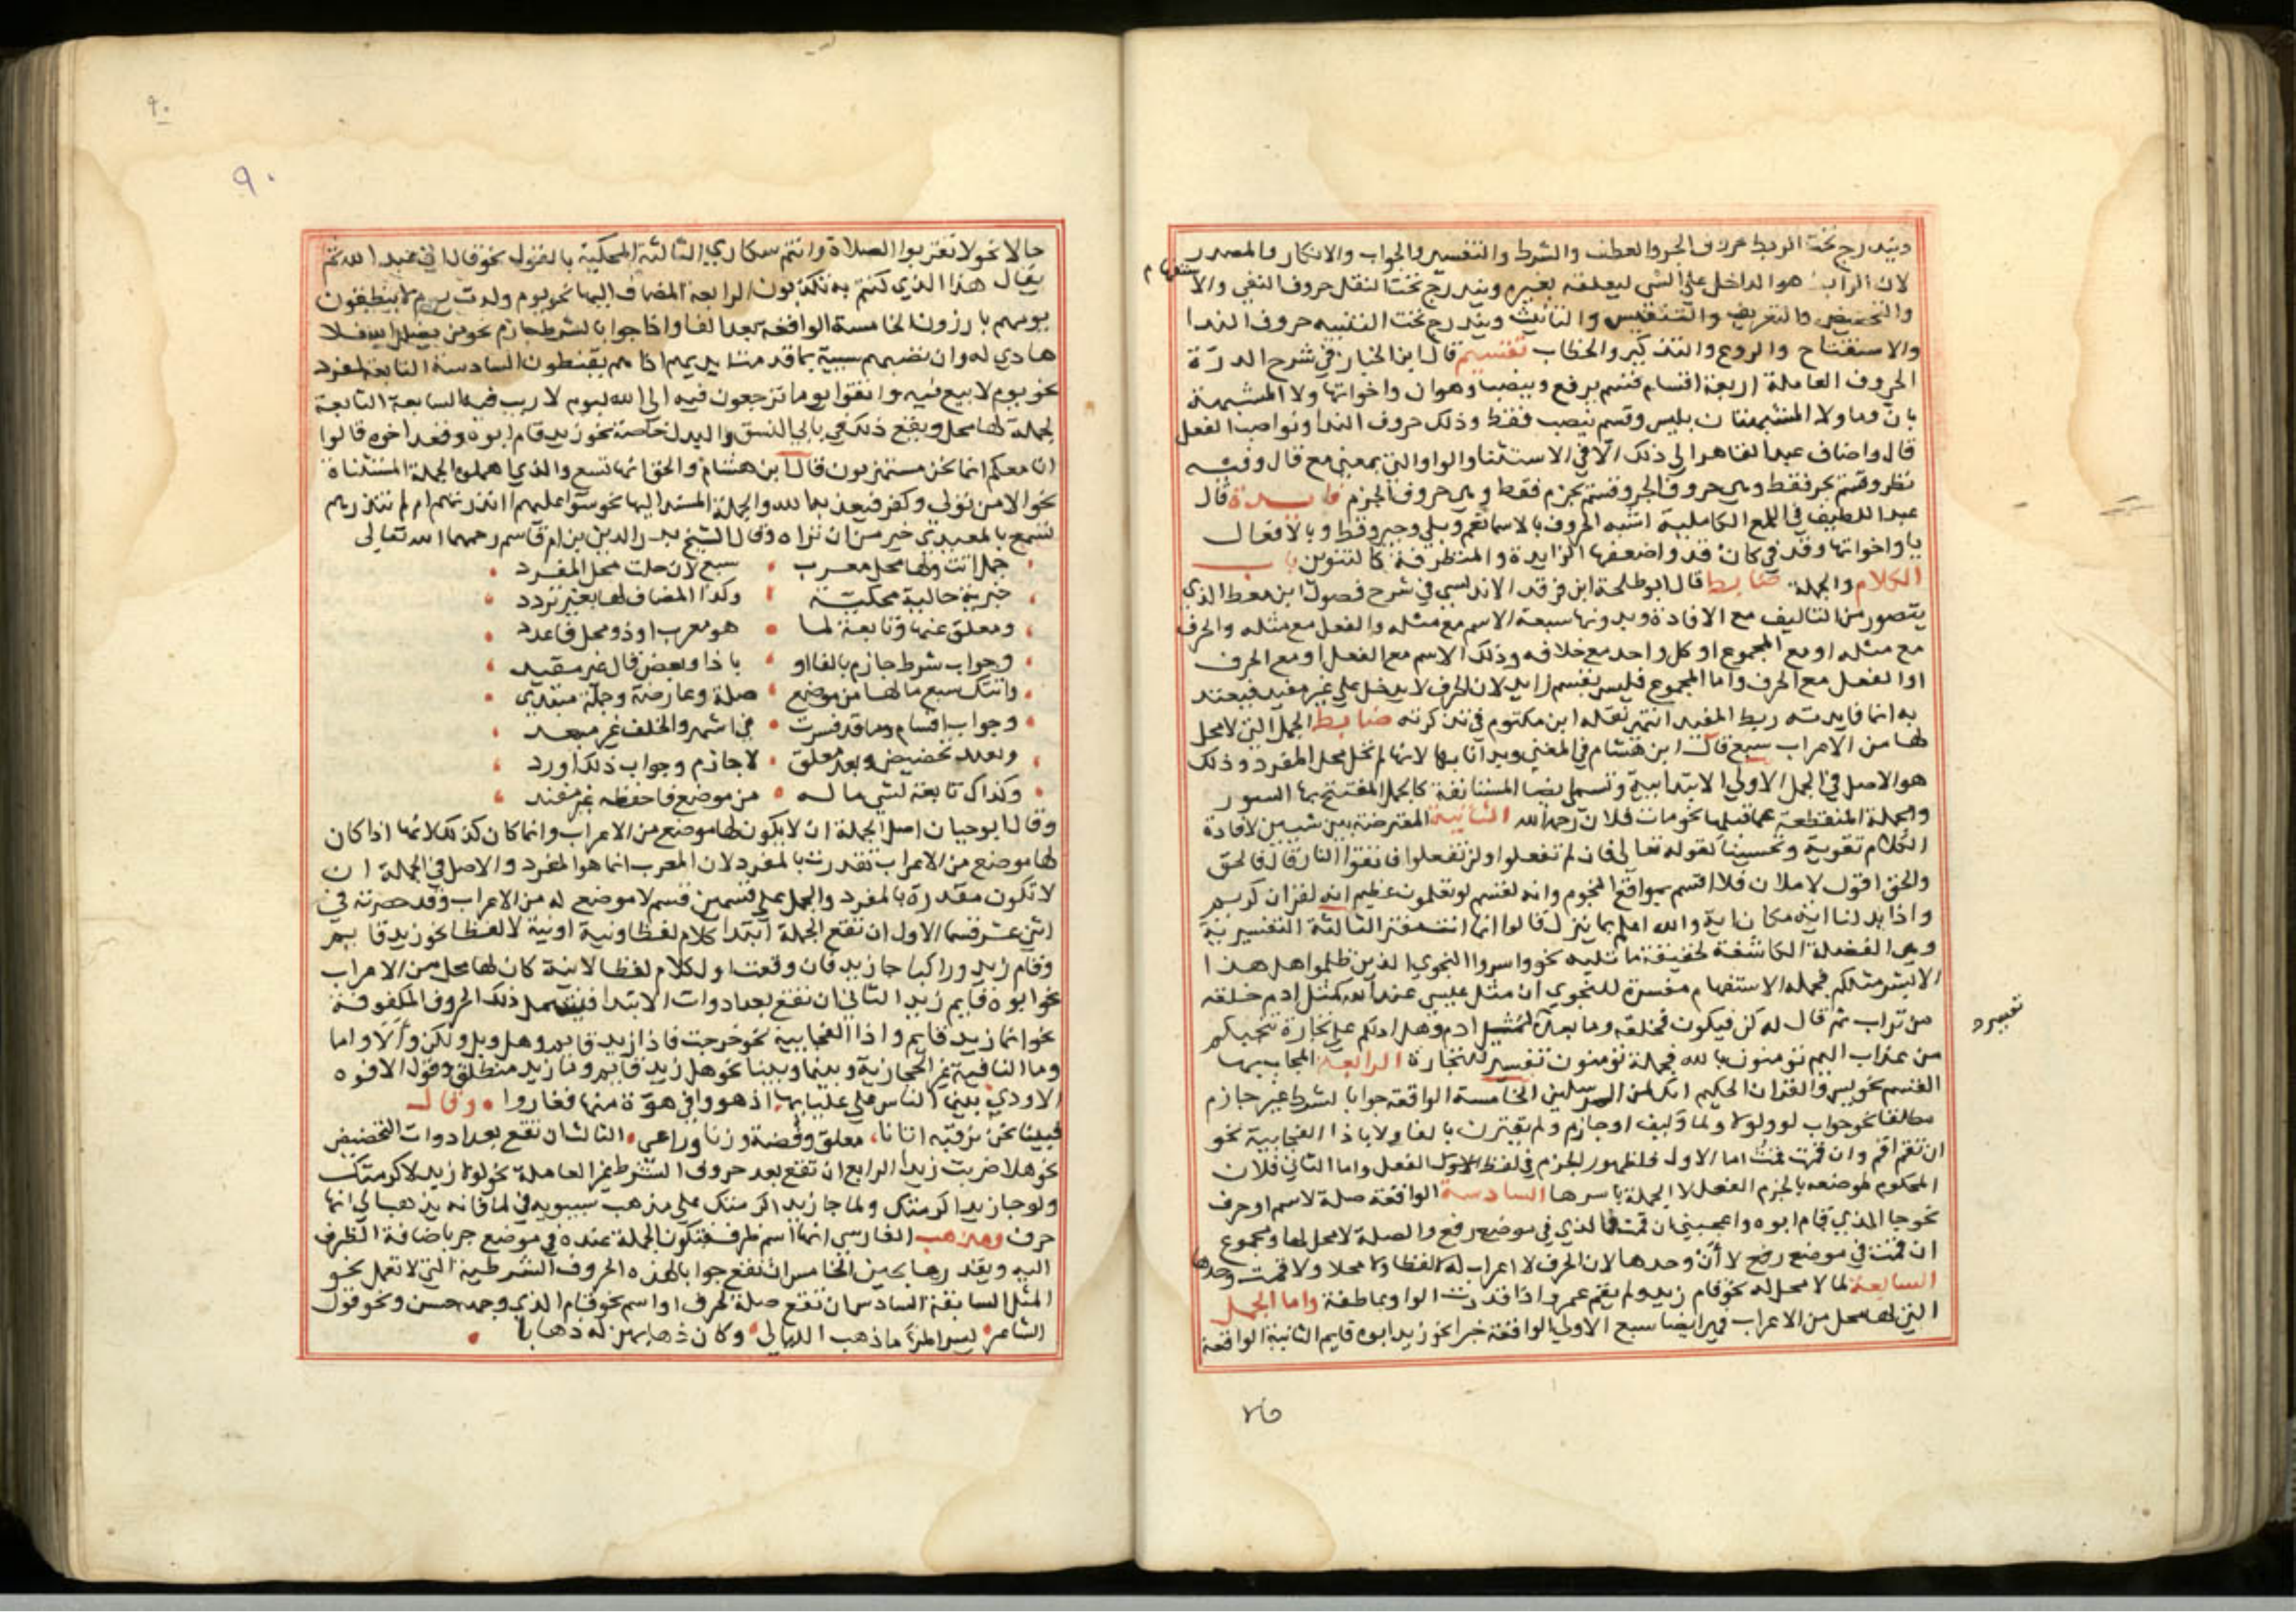 ويندرج تحت الربط حروف الجر والعطف والشرط والتفسير والجواب والانكار والمصدر
لان الرابط هو الداخل على الشي ليعلقه بغيره ويندرج تحت النقل حروف النفي والاستفهام
والتخصيص والتعريف والتنفيس والتانيث ويندرج تحت التنبيه حروف الندا
والاستفتاح والردع والتذكير والخطاب تقسيم قال ابن الخباز في شرح الدرة
الحروف العاملة اربعة اقسام قسم يرفع وينصب وهو ان واخواتها ولا المشبهة
بان وما ولا المشبهتان بليس وقسم ينصب فقط وذلك حروف الندا ونواصب الفعل
قال واضاف عبد القاهر الى ذلك الا في الاستثنا والواو التي بمعنى مع قال وفيه
نظر وقسم يجر فقط وهي حروف الجر وقسم يجزم فقط وهي حروف الجزم فايدة قال
عبد اللطيف في اللمع الكاملية اشبه الحروف بالاسما نعم وبلى وجير وقط وبالافعال
يا واخواتها وقد في كان قد واضعفها الزايدة والمتطرفة كالتنوين باب
الكلام والجملة ضابط قال ابو طلحة ابن فرقد الاندلسي في شرح فصول ابن معط الذي
يتصور من التاليف مع الافادة وبدونها سبعة الاسم مع مثله والفعل مع مثله والحرف
مع مثله او مع المجموع او كل واحد مع خلافه وذلك الاسم مع الفعل او مع الحرف
او الفعل مع الحرف واما المجموع فليس بقسم زايد لان الحرف لا يدخل على غير مفيد فيعتد
به انما فايدته ربط المفيد انتهى نقله ابن مكتوم في تذكرته ضابط الجمل التي لا محل
لها من الاعراب سبع قال ابن هشام في المغني وبدانا بها لانها لم تحل محل المفرد وذلك
هو الاصل في الجمل الاولى الابتدايية وتسمى ايضا المستانفة كالجمل المفتتح بها السور
والجملة المنقطعة عما قبلها نحو مات فلان رحمه الله الثانية المعترضة بين شيين لافادة
الكلام تقوية وتحسينا كقوله تعالى فان لم تفعلوا ولن تفعلوا فاتقوا النار قال فالحق
والحق اقول لاملان فلا اقسم بمواقع النجوم وانه لقسم لو تعلمون عظيم انه لقران كريم
واذا بدلنا اية مكان اية والله اعلم بما ينزل قالوا انما انت مفتر الثالثة التفسيرية
وهي الفضلة الكاشفة لحقيقة ما تليه نحو واسروا النجوى الذين ظلموا هل هذا
الا بشر مثلكم فجملة الاستفهام مفسرة للنجوى ان مثل عيسى عند الله كمثل ادم خلقه
من تراب ثم قال له كن فيكون فخلقه وما بعده لمثل ادم وهل ادلكم على تجارة تنجيكم
تفسير
من عذاب اليم تومنون بالله فجملة تومنون تفسير للتجارة الرابعة المجاب بها
القسم نحو يس والقران الحكيم انك لمن المرسلين الخامسة الواقعة جوابا لشرط غير جازم
مطلقا نحو جواب لو ولولا ولما وكيف او جازم ولم يقترن بالفا ولا باذا الفجايية نحو
ان تقم اقم وان قمت قمت اما الاول فلظهور الجزم في لفظ الفعل واما الثاني فلان
المحكوم لموضعه بالجزم الفعل لا الجملة باسرها السادسة الواقعة صلة لاسم او حرف
نحو جا الذي قام ابوه واعجبني ان قمت فالذي في موضع رفع والصلة لا محل لها ومجموع
ان قمت في موضع رفع لا أن وحدها لان الحرف لا اعراب له لا لفظا ولا محلا ولا قمت وحدها
السابعة لما لا محل له نحو قام زيد ولم يقم عمرو اذا قدرت الواو عاطفة واما الجمل
التي لها محل من الاعراب فهي ايضا سبع الاولى الواقعة خبرا نحو زيد ابوه قايم الثانية الواقعة
٩٠
٩٠
حالا نحو لا تقربوا الصلاة وانتم سكارى الثالثة المحكية بالقول نحو قال اني عبد الله ثم
يقال هذا الذي كنتم به تكذبون الرابعة المضاف اليها نحو يوم ولدت يوم لا ينطقون
يوم هم بارزون الخامسة الواقعة بعد الفا واذا جوابا لشرط جازم نحو من يضلل الله فلا
هادي له وان تصبهم سيية بما قدمت ايديهم اذا هم يقنطون السادسة التابعة لمفرد
نحو يوم لا بيع فيه واتقوا يوما ترجعون فيه الى الله ليوم لا ريب فيه السابعة التابعة
لجملة لها محل ويقع ذلك في بابي النسق والبدل خاصة نحو زيد قام ابوه وقعد اخوه قالوا
انا معكم انما نحن مستهزيون قال ابن هشام والحق انها تسع والذي اهملوه الجملة المستثناة
نحو الا من تولى وكفر فيعذبه الله والجملة المسند اليها نحو سوا عليهم اانذرتهم ام لم تنذرهم
تسمع بالمعيدي خير من ان تراه وقال الشيخ بدر الدين بن ام قاسم رحمهما الله تعالى
جمل اتت ولها محل معرب • سبع لان حلت محل المفرد •
خبرية حالية محكية • وكذا المضاف لها بغير تردد •
ومعلق عنها وتابعة لما • هو معرب او ذو محل فاعدد •
وجواب شرط جازم بالفا او • باذا وبعض قال غير مقيد •
واتتك سبع ما لها من موضع • صلة وعارضة وجملة مبتدي •
وجواب اقسام وما قد فسرت • في اشهر والخلف غير مبعد •
وبعيد تخصيص وبعد معلق • لا جازم وجواب ذلك اورد •
وكذاك تابعة لشي ما له • من موضع فاحفظه غير مفند •
وقال ابو حيان اصل الجملة ان لا يكون لها موضع من الاعراب وانما كان كذلك لانها اذا كان
لها موضع من الاعراب تقدرت بالمفرد لان المعرب انما هو المفرد والاصل في الجملة ان
لا تكون مقدرة بالمفرد والجمل على قسمين قسم لا موضع له من الاعراب وقد حصرته في
اثني عشر قسما الاول ان تقع الجملة ابتدا كلام لفظا ونية او نية لا لفظا نحو زيد قايم
وقام زيد وراكبا جا زيد فان وقعت اول كلام لفظا لا نية كان لها محل من الاعراب
نحو ابوه قايم زيد الثاني ان تقع بعد ادوات الابتدا فيشمل ذلك الحروف المكفوفة
نحو انما زيد قايم واذا الفجايية نحو خرجت فاذا زيد قايم وهل وبل ولكن وألا واما
وما النافية غير الحجازية وبينما وبينا نحو هل زيد قايم وما زيد منطلق وقول الافوه
الاودي بينما الناس على عليايها • اذ هووا في هوة منها فغاروا • وقال
فبينا نحن نرقبه اتانا • معلق وفضة وزناد راعي • الثالث ان تقع بعد ادوات التحضيض
نحو هلا ضربت زيدا الرابع ان تقع بعد حروف الشرط غير العاملة نحو لولا زيد لاكرمتك
ولو جا زيد اكرمتك ولما جا زيد اكرمتك على مذهب سيبويه في لما فانه يذهب الى انها
حرف ومذهب الفارسي انها اسم ظرف فتكون الجملة عنده في موضع جر باضافة الظرف
اليه ويقدرها بحين الخامس ان تقع جوابا لهذه الحروف الشرطية التي لا تعمل نحو
المثل السابقة السادس ان تقع صلة لحرف او اسم نحو قام الذي وجهه حسن ونحو قول
الشاعر • يسر المرء ما ذهب الليالي • وكان ذهابهن له ذهابا •